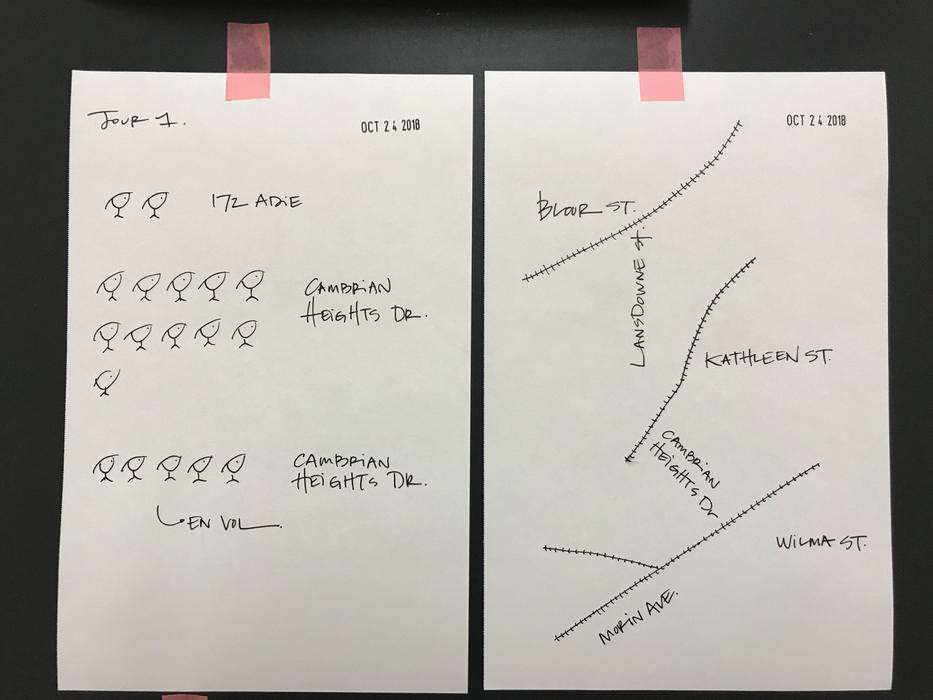 JOUR 1.
OCT 24 2018
172 ADIE
CAMBRIAN
HEIGHTS DR.
CAMBRIAN
HEIGHTS DR.
EN VOL
OCT 24 2018
BLOUR ST.
LANSDOWNE St.
KATHLEEN ST.
CAMBRIAN
HEIGHTS Dr
WILMA ST.
MORIN AVE.